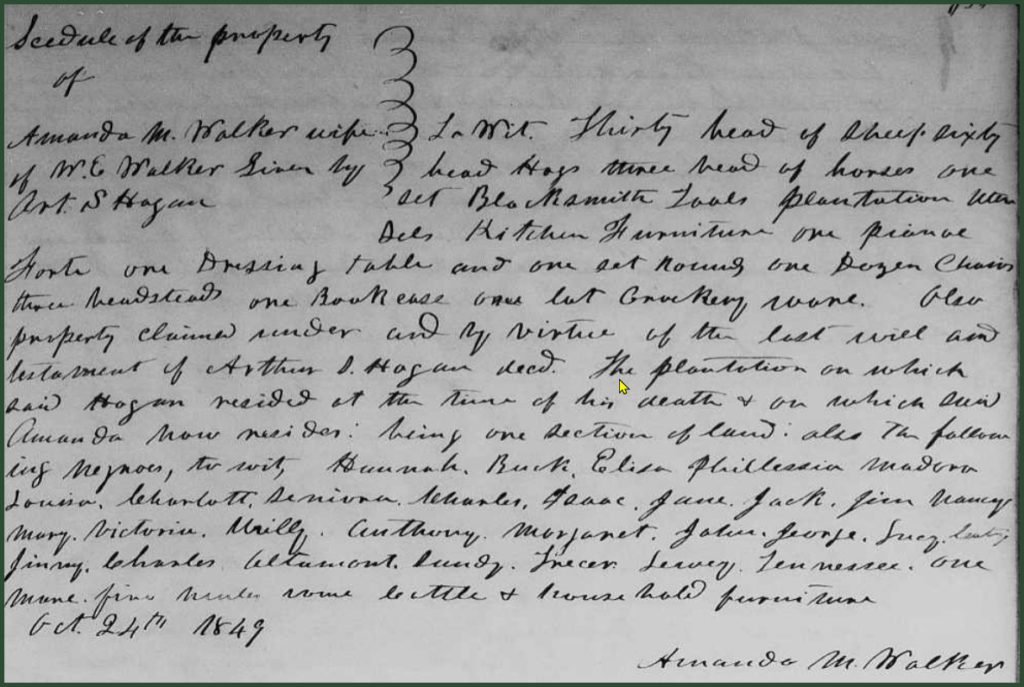 Scedule of the property
of
Amanda M. Walker wife
of W. E Walker Given by
Art. S Hogan
To Wit. Thirty head of sheep sixty
head Hogs three head of horses one
set Blacksmith Tools plantation uten
sels Kitchen Furniture one pianoe
Forte one Dressing table and one set round one Dozen Chairs
three beadsteads one Book case one lot Crockery ware. Also
property claimed under and by virtue of the last will and
testament of Arthur S. Hogan decd. The plantation on which
said Hogan resided at the time of his death & on which said
Amanda now resides: being one section of land: also the follow
ing negroes, to wit, Hannah. Buck. Elisa Phillessia Madora
Louisa. Charlott. Seniora. Charles. Isaac. Jane. Jack. Jim Nancy
Mary. Victoria. Milly. Anthony. Margaret. John. George. Lucy
Jinny. Charles. Altamont. Dundy. Tennessee. one
mare. five mules some cattle & household furniture
Oct. 24th 1849
Amanda M. Walker